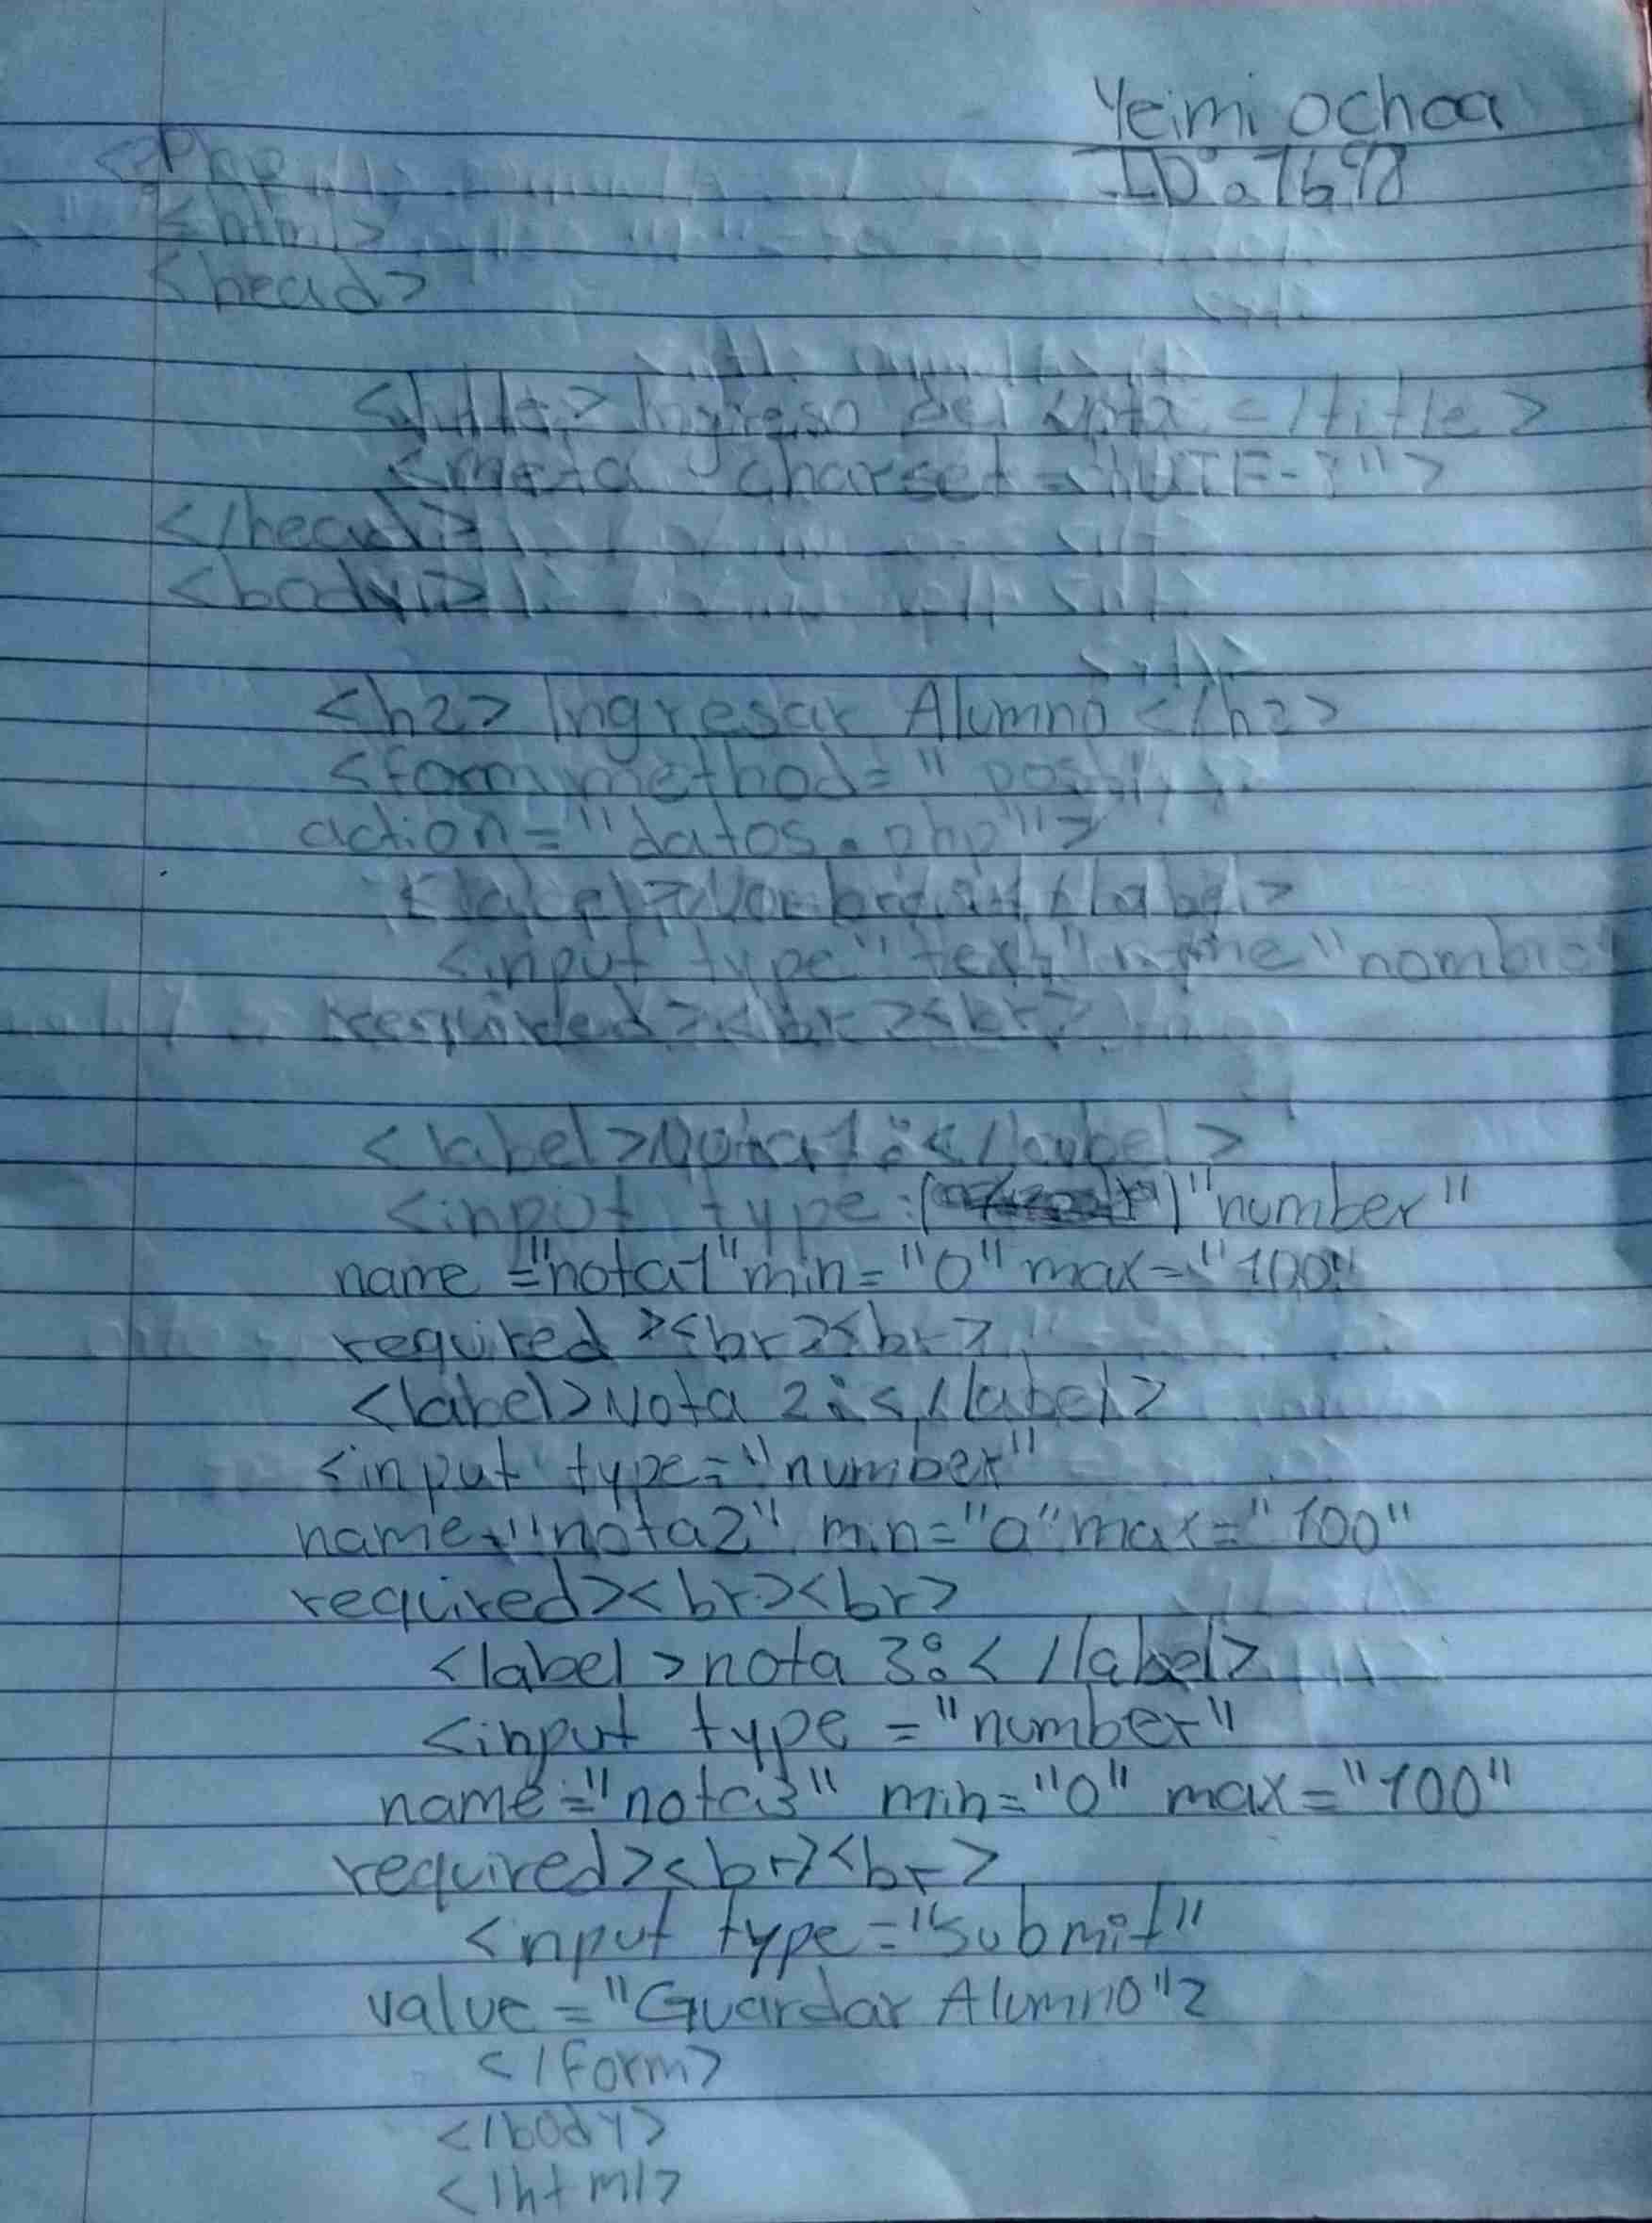 Yeimi ochoa
ID: 7698
<?Php
<html>
<head>
<title> Ingreso del nota </title>
<meta charset="UTF-8">
</head>
<body>
<h2> Ingresar Alumno </h2>
<form method="post"
action="datos.php">
<label>Nombre: </label>
<input type"text" name"nombre"
required><br><br>
<label>Nota1:</label>
<input type: "number"
name="nota1" min="0" max="100"
required><br><br>
<label>Nota 2:</label>
<input type="number"
name="nota2" min="0" max="100"
required><br><br>
<label>nota 3:</label>
<input type="number"
name="nota3" min="0" max="100"
required><br><br>
<input type="Submit"
value="Guardar Alumno">
</form>
</body>
</html>